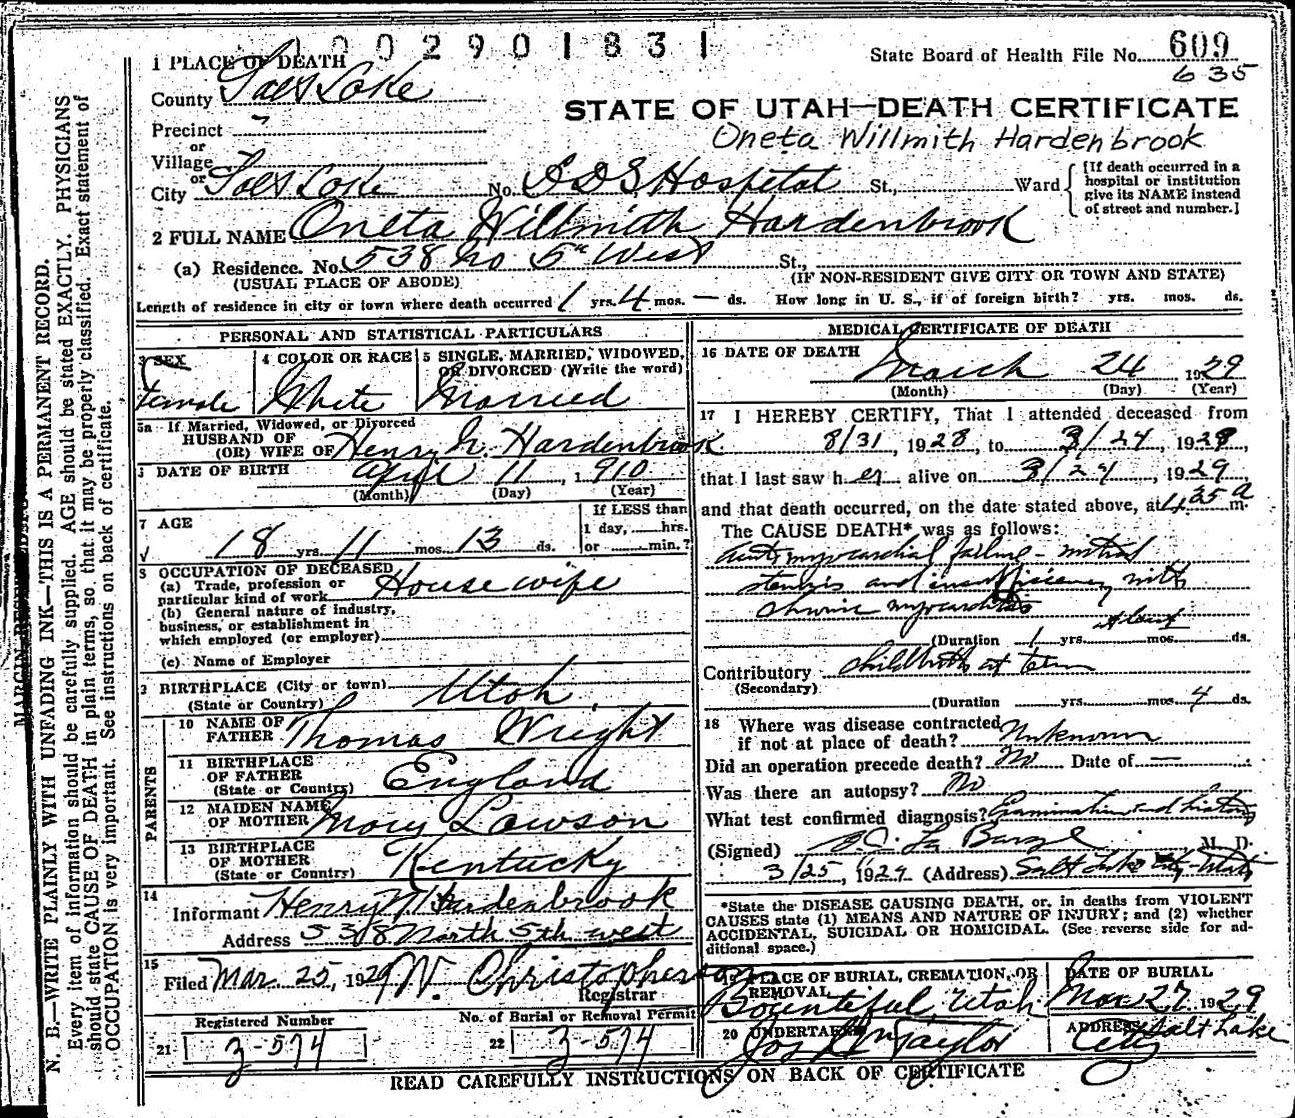 1002901831
State Board of Health File No. 609
635
1 PLACE OF DEATH
County Salt Lake
STATE OF UTAH—DEATH CERTIFICATE
Oneta Willmith Hardenbrook
Precinct
or
Village
or
City Salt Lake No. LDS Hospital St., Ward
[If death occurred in a
hospital or institution
give its NAME instead
of street and number.]
2 FULL NAME Oneta Willmith Hardenbrook
(a) Residence. No. 538 No 5th West St.,
(USUAL PLACE OF ABODE) (IF NON-RESIDENT GIVE CITY OR TOWN AND STATE)
Length of residence in city or town where death occurred 1 yrs. 4 mos. — ds. How long in U. S., if of foreign birth? yrs. mos. ds.
PERSONAL AND STATISTICAL PARTICULARS
3 SEX
Female
4 COLOR OR RACE
White
5 SINGLE, MARRIED, WIDOWED,
OR DIVORCED (Write the word)
Married
5a If Married, Widowed, or Divorced
HUSBAND OF
(OR) WIFE OF Henry N. Hardenbrook
DATE OF BIRTH April 11, 1910
(Month) (Day) (Year)
7 AGE
18 yrs. 11 mos. 13 ds.
If LESS than
1 day, hrs.
or min.?
8 OCCUPATION OF DECEASED
(a) Trade, profession or
particular kind of work Housewife
(b) General nature of industry,
business, or establishment in
which employed (or employer)
(c) Name of Employer
9 BIRTHPLACE (City or town)
(State or Country) Utah
PARENTS
10 NAME OF
FATHER Thomas Wright
11 BIRTHPLACE
OF FATHER
(State or Country) England
12 MAIDEN NAME
OF MOTHER Mary Lawson
13 BIRTHPLACE
OF MOTHER
(State or Country) Kentucky
14
Informant Henry N Hardenbrook
Address 538 North 5th west
15
Filed Mar. 25, 1929 W. Christopherson
Registrar
Registered Number
21 3-574
No. of Burial or Removal Permit
22 3-574
MEDICAL CERTIFICATE OF DEATH
16 DATE OF DEATH
March 24 1929
(Month) (Day) (Year)
17 I HEREBY CERTIFY, That I attended deceased from
8/31, 1928, to 3/24, 1929,
that I last saw her alive on 3/24, 1929
and that death occurred, on the date stated above, at 4:35 a m.
The CAUSE DEATH* was as follows:
Acute myocardial failure - mitral
stenosis and insufficiency with
chronic myocarditis
(Duration 1 yrs. mos. ds.
Contributory childbirth at term
(Secondary)
(Duration yrs. mos. 4 ds.
18 Where was disease contracted
if not at place of death? Unknown
Did an operation precede death? No Date of —
Was there an autopsy? No
What test confirmed diagnosis? Examination and history
(Signed) M. D.
3/25, 1929 (Address) Salt Lake City - Utah
*State the DISEASE CAUSING DEATH, or, in deaths from VIOLENT
CAUSES state (1) MEANS AND NATURE OF INJURY; and (2) whether
ACCIDENTAL, SUICIDAL OR HOMICIDAL. (See reverse side for ad-
ditional space.)
19 PLACE OF BURIAL, CREMATION, OR
REMOVAL
Bountiful, Utah
DATE OF BURIAL
Mar 27 1929
20 UNDERTAKER
Taylor
ADDRESS Salt Lake
City
READ CAREFULLY INSTRUCTIONS ON BACK OF CERTIFICATE
N. B.—WRITE PLAINLY WITH UNFADING INK—THIS IS A PERMANENT RECORD.
Every item of information should be carefully supplied. AGE should be stated EXACTLY. PHYSICIANS
should state CAUSE OF DEATH in plain terms, so that it may be properly classified. Exact statement of
OCCUPATION is very important. See instructions on back of certificate.